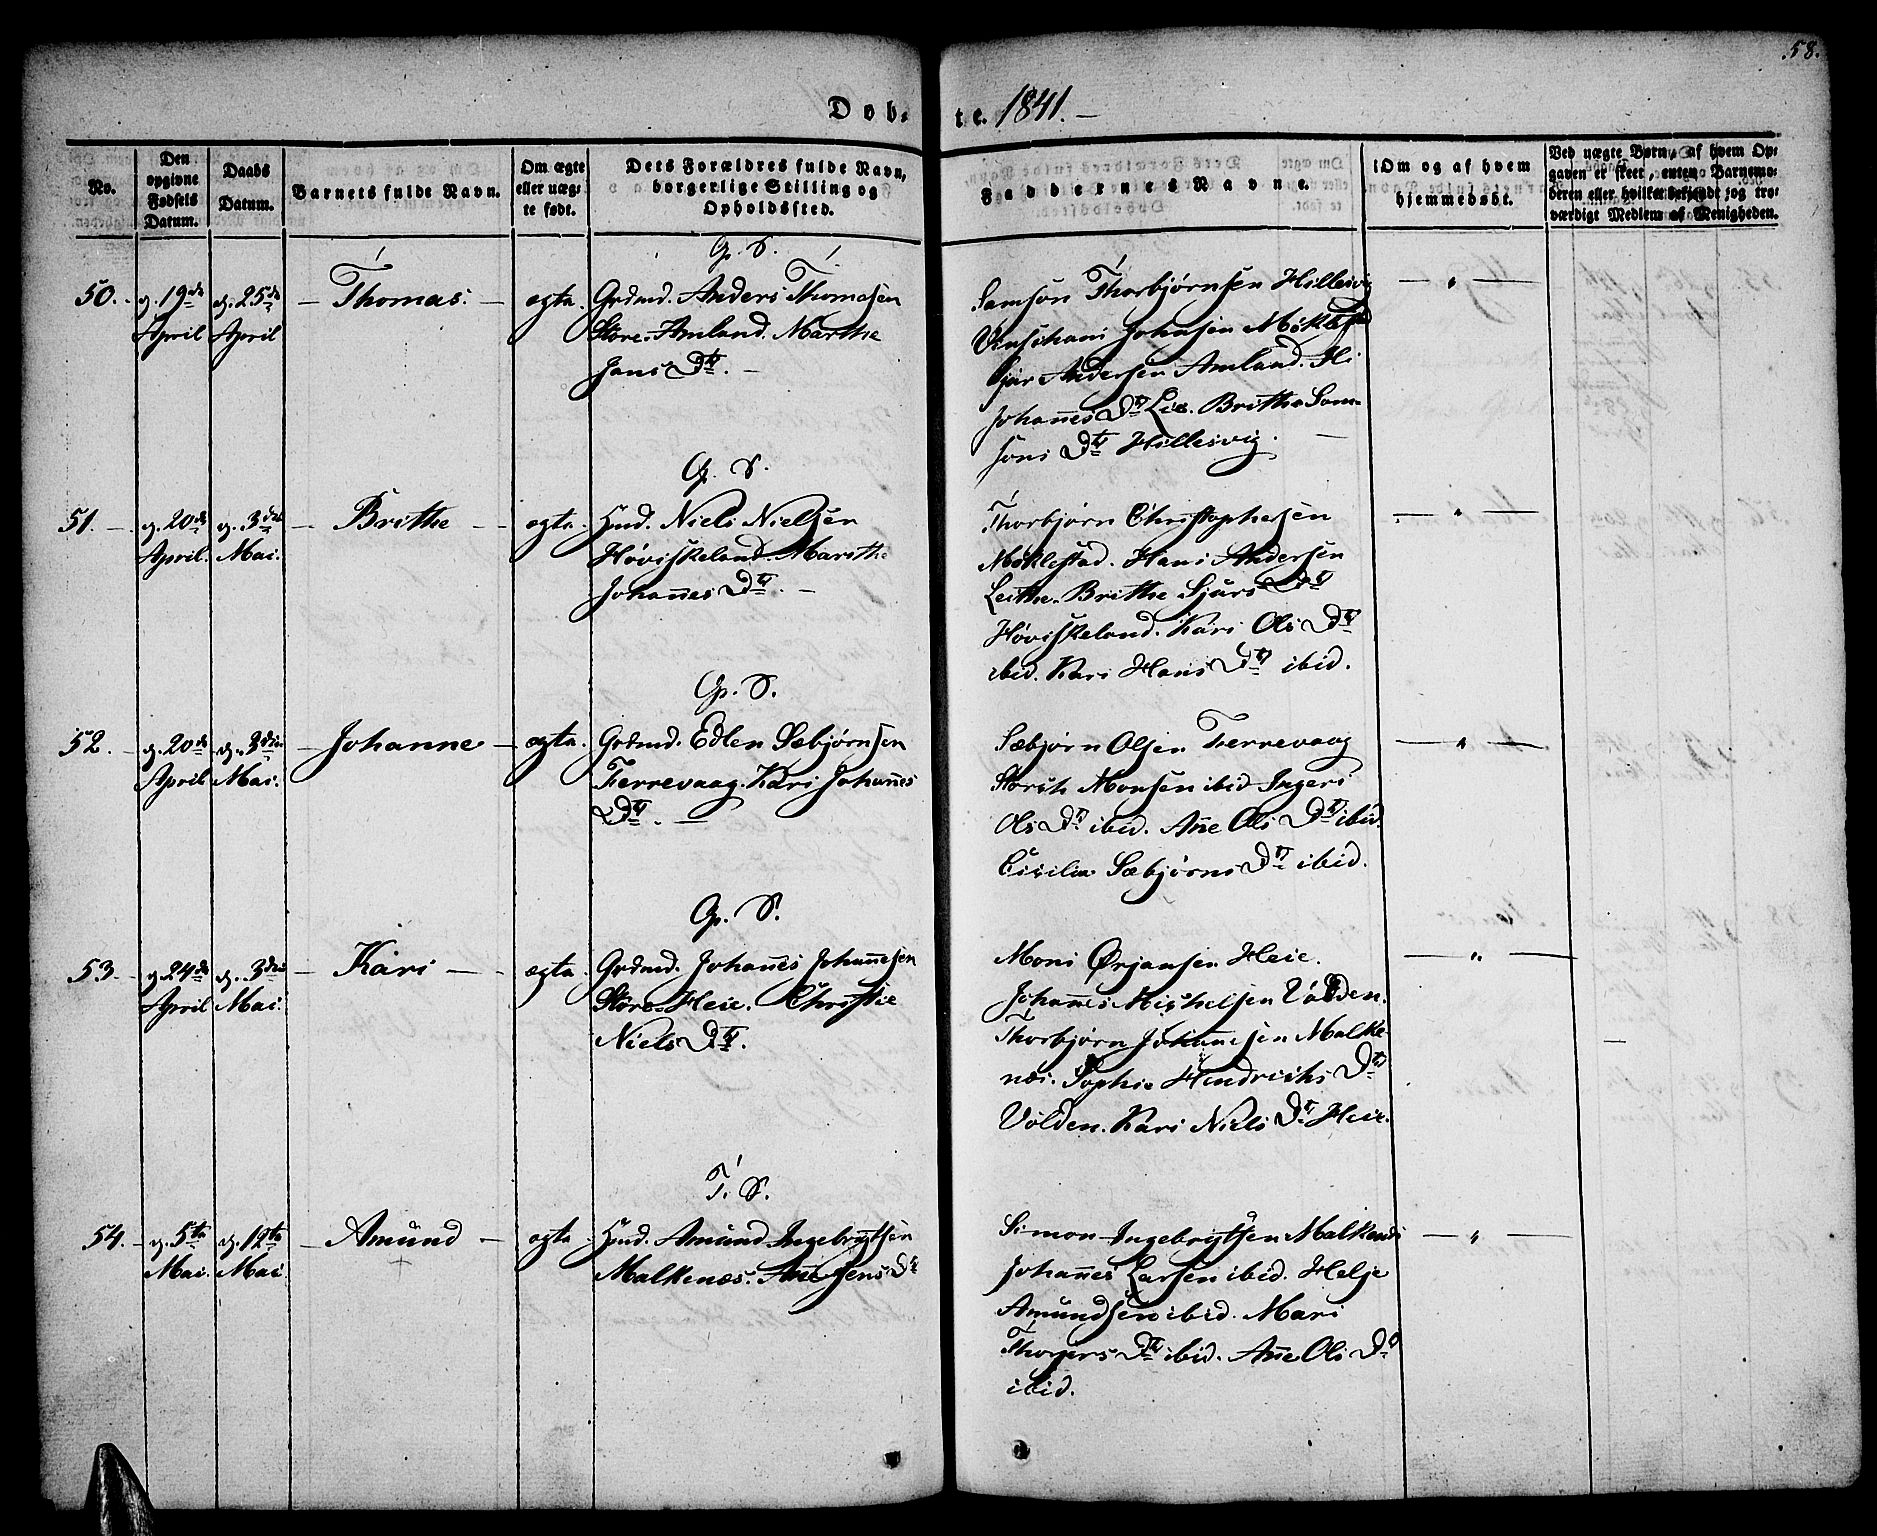 58.
Døb- te. 1841. —
No.
Den opgivne Fødsels Datum.
Daabs Datum.
Barnets fulde Navn.
Om ægte eller uæg- te født.
Dets Forældres fulde Navn, borgerlige Stilling og Opholdssted.
Faddernes Navne.
Om og af hvem hjemmedøbt.
Ved uægte Børn, af hvem Op- gaven er skeet, enten Barnemo- deren eller hvilket bekjendt og tro- værdigt Medlem af Menigheden.
G. S.
50. d. 19de April
d. 25de April
— Thomas. —
ægta.
Grdmd. Anders Thomesen
Store-Amland. Marthe
Jans Dtr. —
Samson Thorbjørnsen Hillesvig
Johnsen
Sjur Andersen Amland.
Johannes Dtr Lie. Brithe Sam-
sons Dtr Hillesvig. —
— " —
G. S.
51. — d. 20de April.
d. 3die Mai.
— Brithe —
ægta.
Hmd. Niels Nielsen
Høviskeland. Marithe
Johannes Dtr. —
Thorbjørn Christophersen
Møklestad. Hans Andersen
Leithe. Brithe Sjurs Dtr
Høviskeland. Kari Ols Dtr
ibid. Kari Hans Dtr ibid.
— " —
G. S.
52. — d. 20de April
d. 3die Mai.
— Johanne —
ægta.
Grdmd. Edlen Sæbjørnsen
Færrevaag. Kari Johannes
Dtr. —
Sæbjørn Olsen Færrevaag
Monsen ibid Ingeri
Ols Dtr ibid. Añe Ols Dtr ibid.
Cicilia Sæbjørns Dtr ibid.
— " —
G. S.
53. — d. 24de April
d. 3die Mai.
— Kari —
ægta.
Grdmd. Johañes Johañesen
Store-Heie. Christie
Niels Dtr.
Mons Ørjansen Heie.
Johañes Michelsen Volden.
Thorbjørn Johañesen Malke-
næs. Sophie Hendrichs Dtr
Volden. Kari Niels Dtr Heie.
— " —
—
T. S.
54. — d. 5te Mai.
d. 12te Mai.
— Amund —
+
ægta.
Hmd. Amund Ingebrigtsen
Malkenæs. Añe Jens Dtr
Simon Ingebrigtsen Malkenæs
Johañes Larsen ibid. Helje
Amundsen ibid. Mari
Thorgers Dtr ibid. Añe Ols Dtr
ibid.
— " —